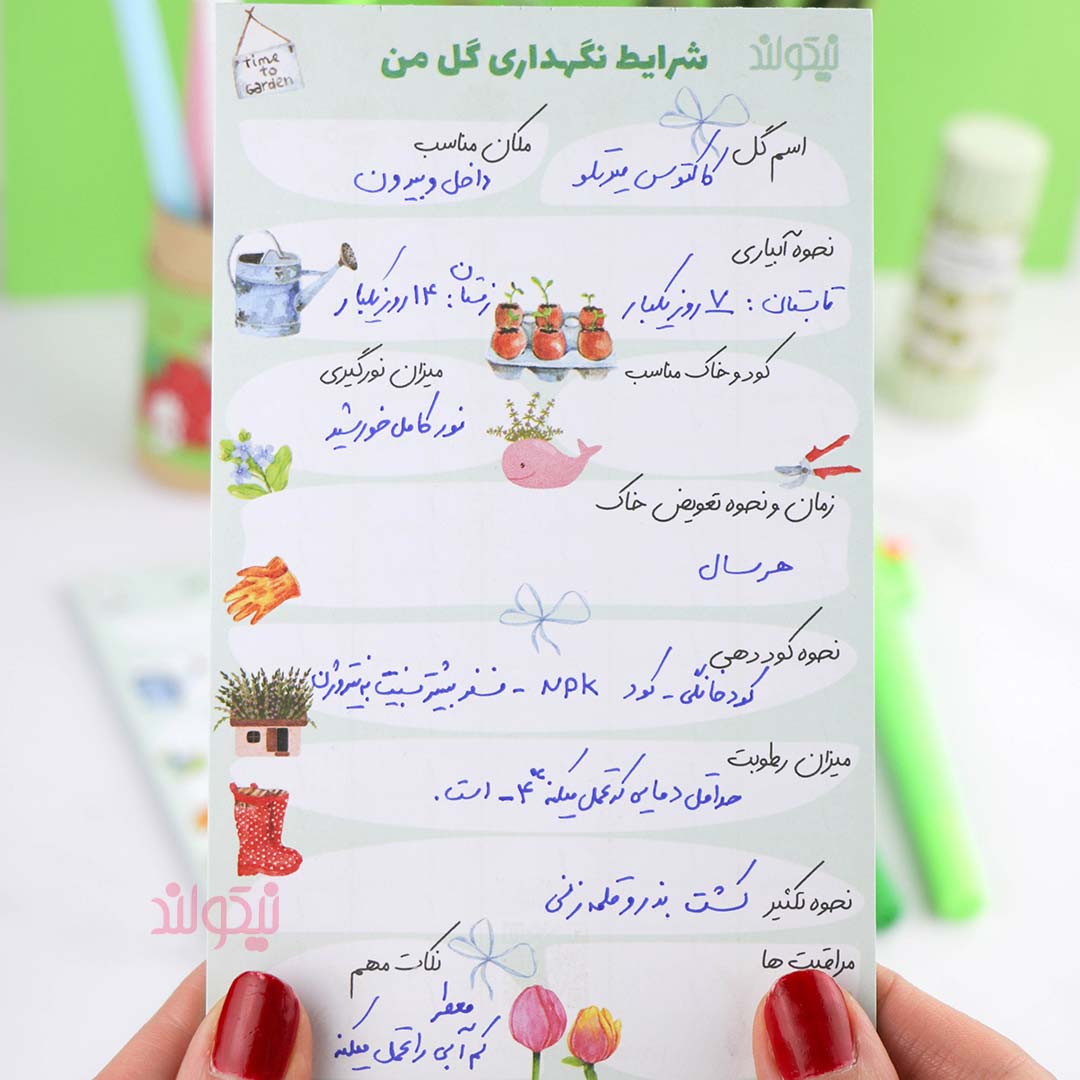 نیکولند
شرایط نگهداری گل من
time
to
Garden
اسم گل
کاکتوس
مکان مناسب
داخل و بیرون
نحوه آبیاری
تابستان : ۷ روز یکبار
زمستان : ۱۴ روز یکبار
کود و خاک مناسب
میزان نورگیری
نور کامل خورشید
زمان و نحوه تعویض خاک
هر سال
نحوه کود دهی
کود خانگی - کود NPK - فسفر بیشتر نسبت به نیتروژن
میزان رطوبت
حداقل دمایی که تحمل میکنه ۴- است.
نحوه تکثیر
کشت بذر و قلمه زنی
مراقبت ها
نکات مهم
معطر
کم آبی را تحمل میکنه
نیکولند